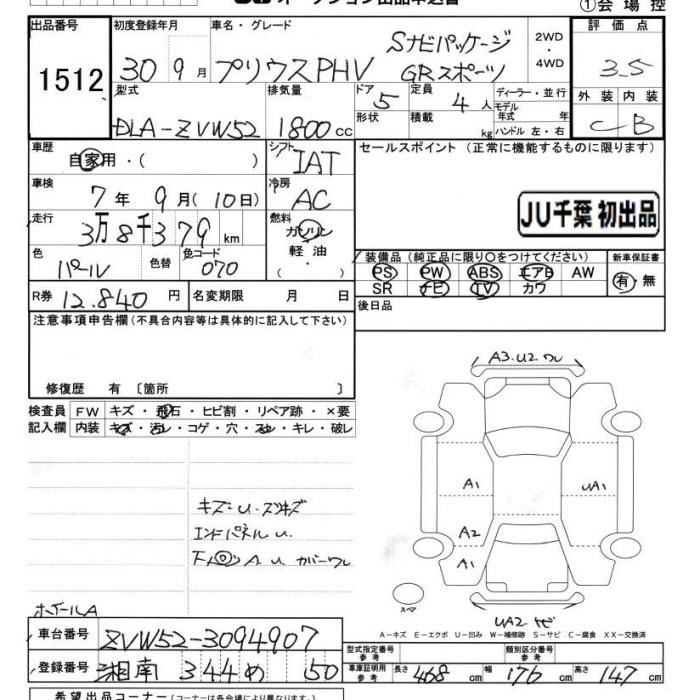 ①会場控
出品番号 1512
初度登録年月 30 9月
車名・グレード プリウスPHV Sナビパッケージ GRスポーツ
2WD・4WD
評価点 3.5
型式 DLA-ZVW52
排気量 1800cc
ドア 5
形状
定員 4人
積載 kg
ディーラー・並行
モデル年式 年
ハンドル 左・右
外装 内装
C B
車歴 自家用・( )
シフト IAT
セールスポイント (正常に機能するものに限ります)
車検 7年9月(10日)
冷房 AC
JU千葉 初出品
走行 3万8千379km
燃料 ガソリン 軽・油 ( )
色 パール 色替
色コード 070
装備品 (純正品に限り○をつけてください)
PS PW ABS エアB AW
SR ナビ TV カワ
新車保証書
有・無
R券 12,840円
名変期限 月 日
後日品
注意事項申告欄(不具合内容等は具体的に記入して下さい)
修復歴 有〔箇所 〕
検査員記入欄
FW キズ・飛石・ヒビ割・リペア跡・×要
内装 キズ・汚レ・コゲ・穴・スレ・キレ・破レ
A3.U2.ワレ
A1
UA1
A2
A1
キズ・U.スリキズ
エンドパネルU.
A.U.カバーワレ
スペア
UA2 サビ
ホイールA
A－キズ E－エクボ U－凹み W－補修跡 S－サビ C－腐食 XX－交換済
車台番号 ZVW52-3094907
登録番号 湘南 344 め 50
型式指定番号 参考
類別区分番号 参考
車庫証明用 参考 長さ 468cm 幅 176cm 高さ 147cm
希望出品コーナー(コーナーは各会場により異なります)